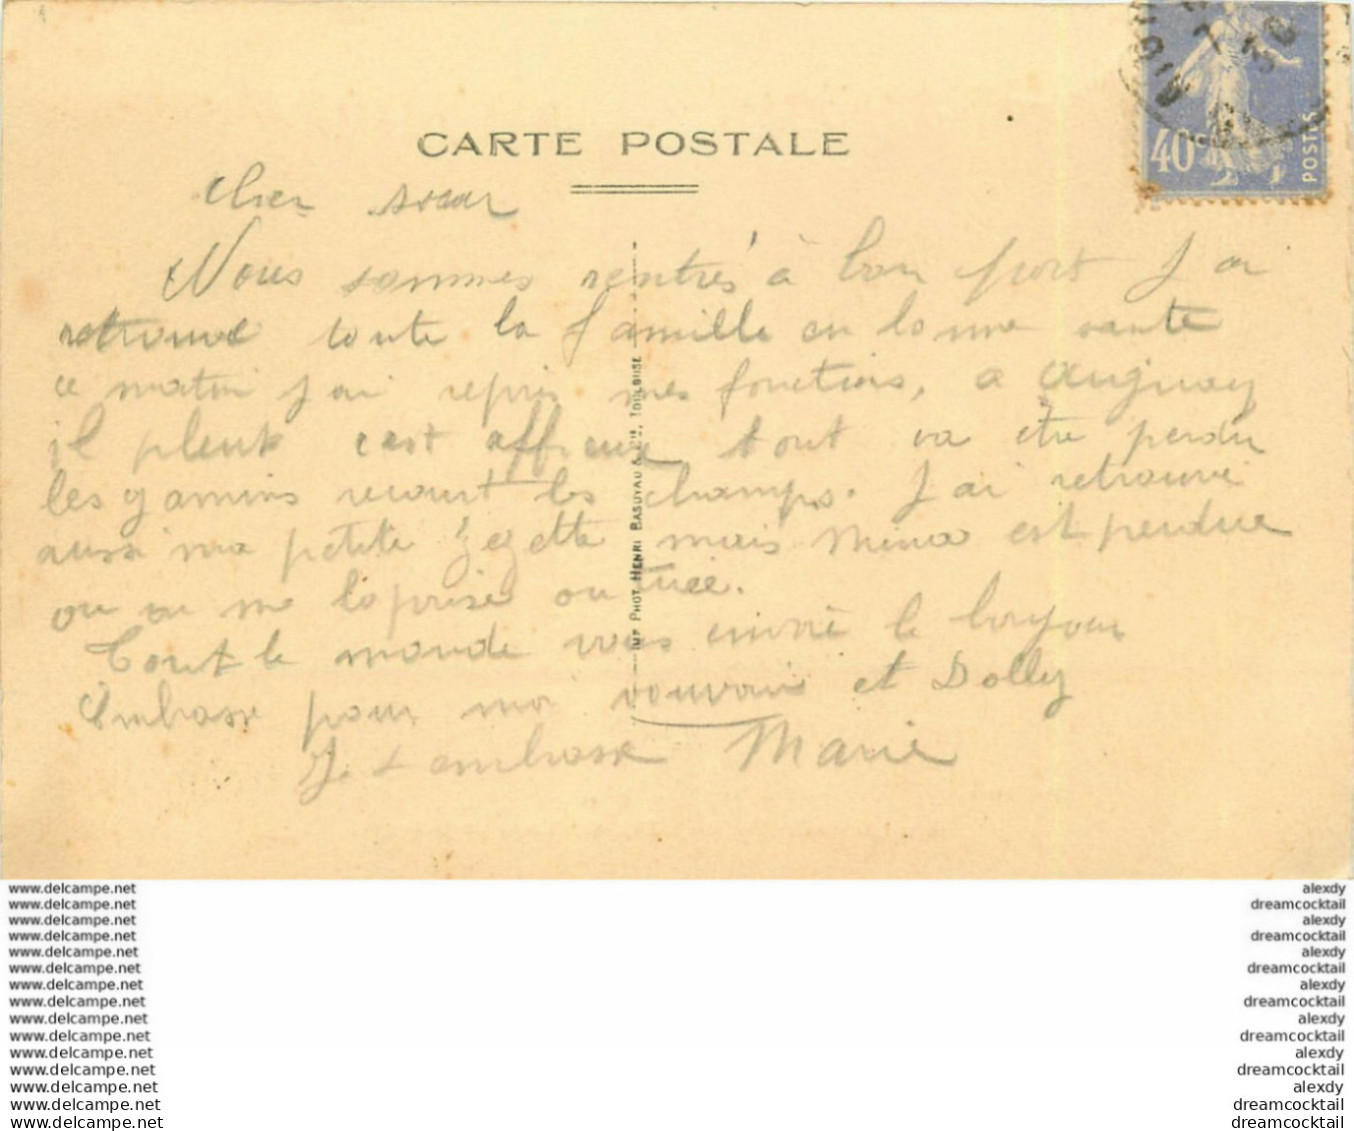 CARTE POSTALE
40c
POSTES
Cher soeur
Nous sommes rentrés à bon port J'ai
retrouvé toute la famille en bonne santé
ce matin j'ai repris mes fonctions, a
il pleut c'est affreux tout va être perdu
les gamins recourt les champs. J'ai retrouvé
aussi ma petite Zezette mais Mina est perdue
ou on me la prise ou tuée.
Tout le monde vous envoie le bonjour
Embrasse pour moi et Dolly
Je t'embrasse Marie
PHOT. HENRI BASUYAU & CIE, TOULOUSE
www.delcampe.net alexdy
www.delcampe.net dreamcocktail
www.delcampe.net alexdy
www.delcampe.net dreamcocktail
www.delcampe.net alexdy
www.delcampe.net dreamcocktail
www.delcampe.net alexdy
www.delcampe.net dreamcocktail
www.delcampe.net alexdy
www.delcampe.net dreamcocktail
www.delcampe.net alexdy
www.delcampe.net dreamcocktail
www.delcampe.net alexdy
www.delcampe.net dreamcocktail
www.delcampe.net dreamcocktail